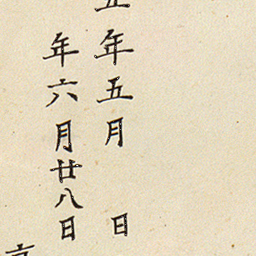 五年五月 日
年六月廿八日